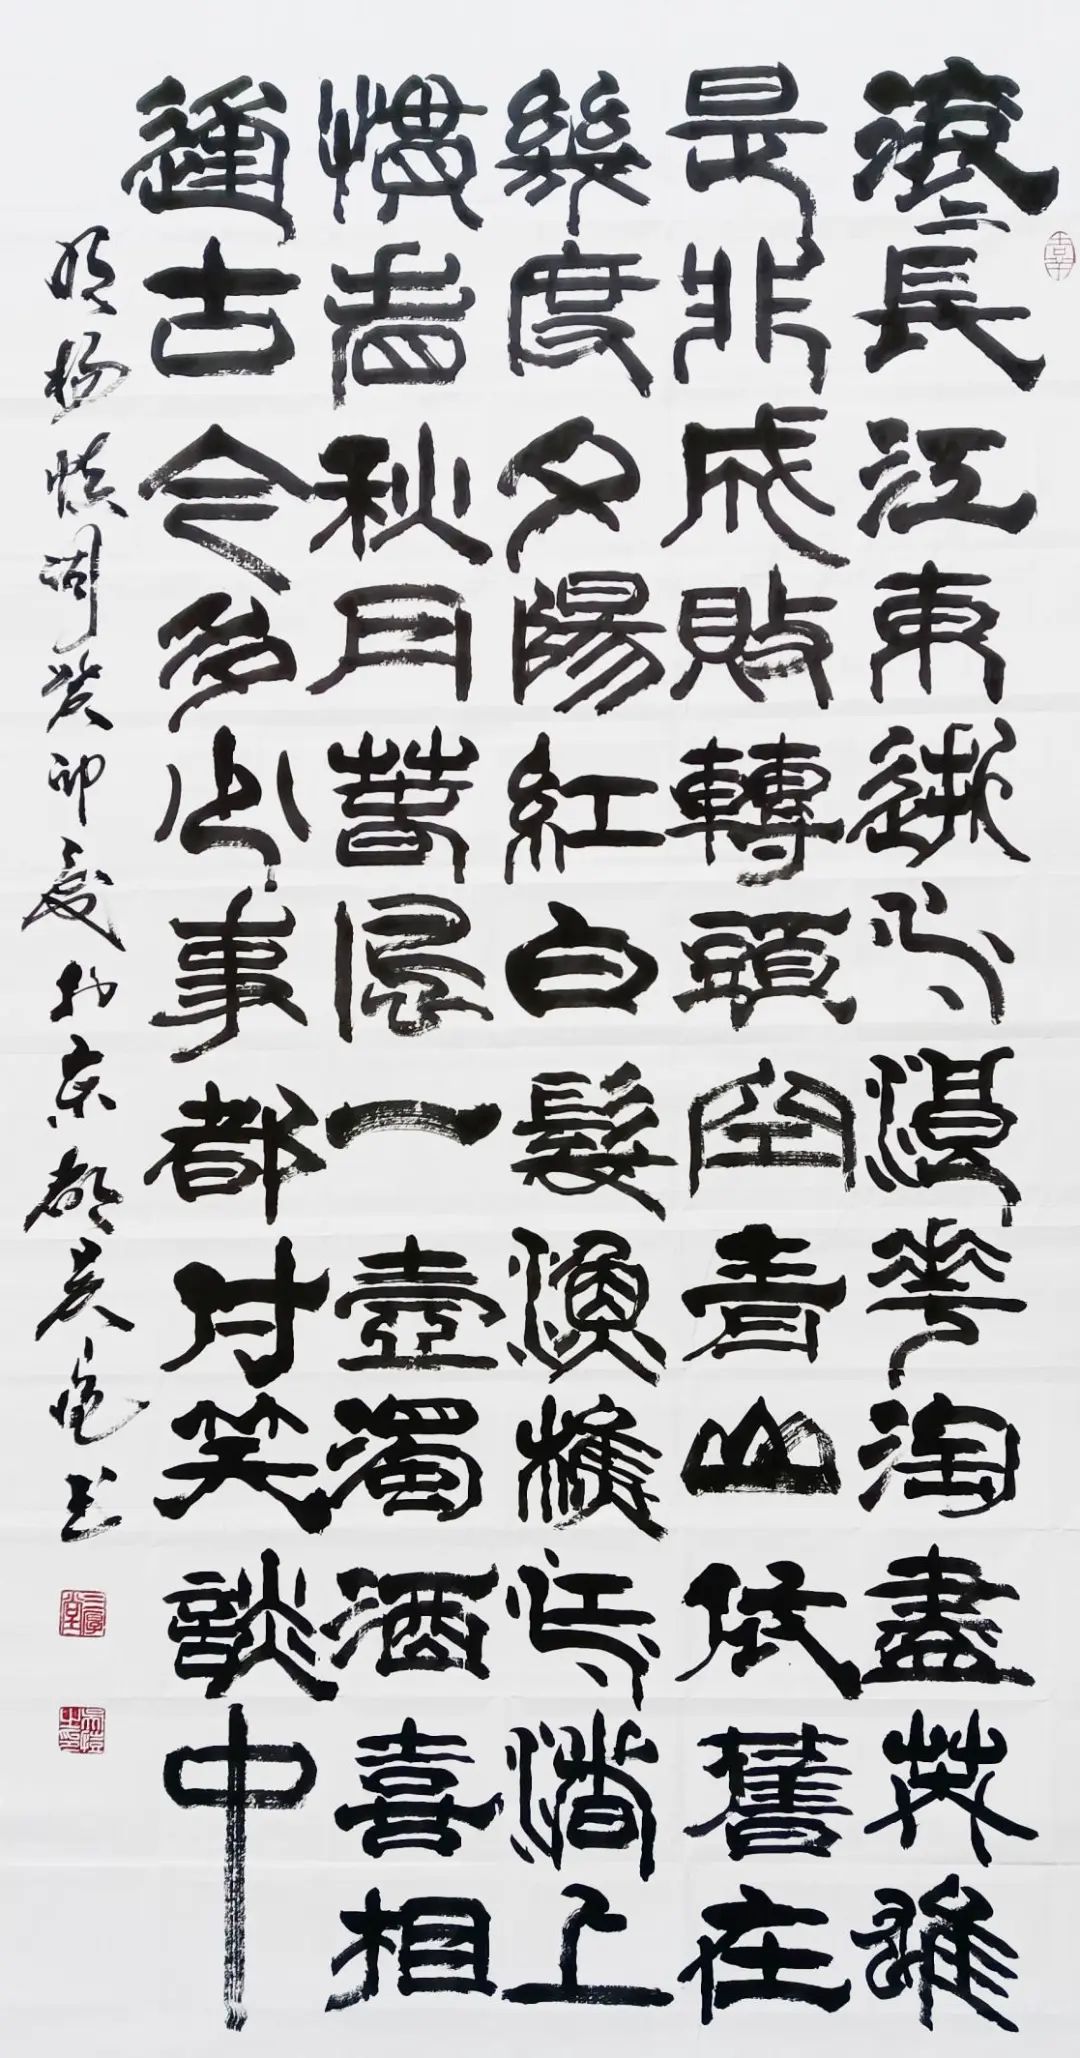 滚〻長江東逝水浪花淘盡英雄
是非成敗轉頭空青山依舊在
幾度夕陽紅白髮漁樵江渚上
慣看秋月春風一壺濁酒喜相
逢古今多少事都付笑談中
明楊慎詞癸卯夏於京都吴书